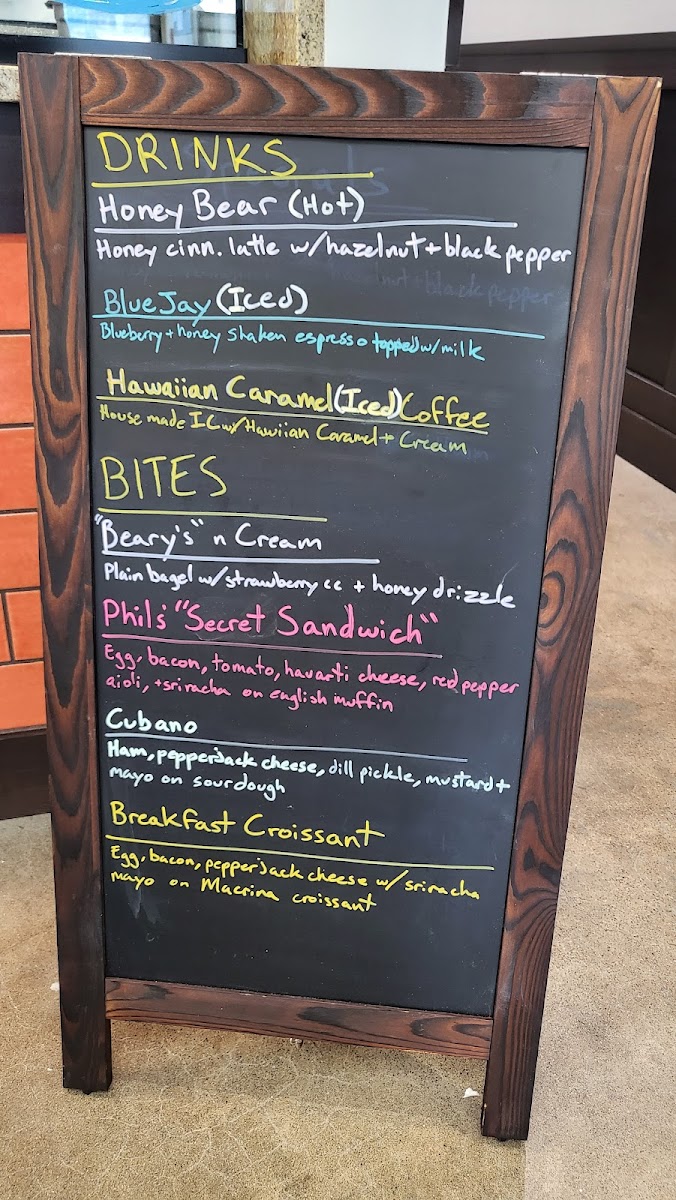 DRINKS
Honey Bear (Hot)
Honey cinn. latte w/hazelnut + black pepper
Blue Jay (Iced)
Blueberry + honey shaken espresso topped w/ milk
Hawaiian Caramel (Iced) Coffee
House made IC w/ Hawiian Caramel + Cream
BITES
"Beary's" n Cream
Plain bagel w/strawberry cc + honey drizzle
Phils' "Secret Sandwich"
Egg, bacon, tomato, havarti cheese, red pepper
aioli, + sriracha on english muffin
Cubano
Ham, pepperjack cheese, dill pickle, mustard +
mayo on sourdough
Breakfast Croissant
Egg, bacon, pepperjack cheese w/ sriracha
mayo on Macrina croissant